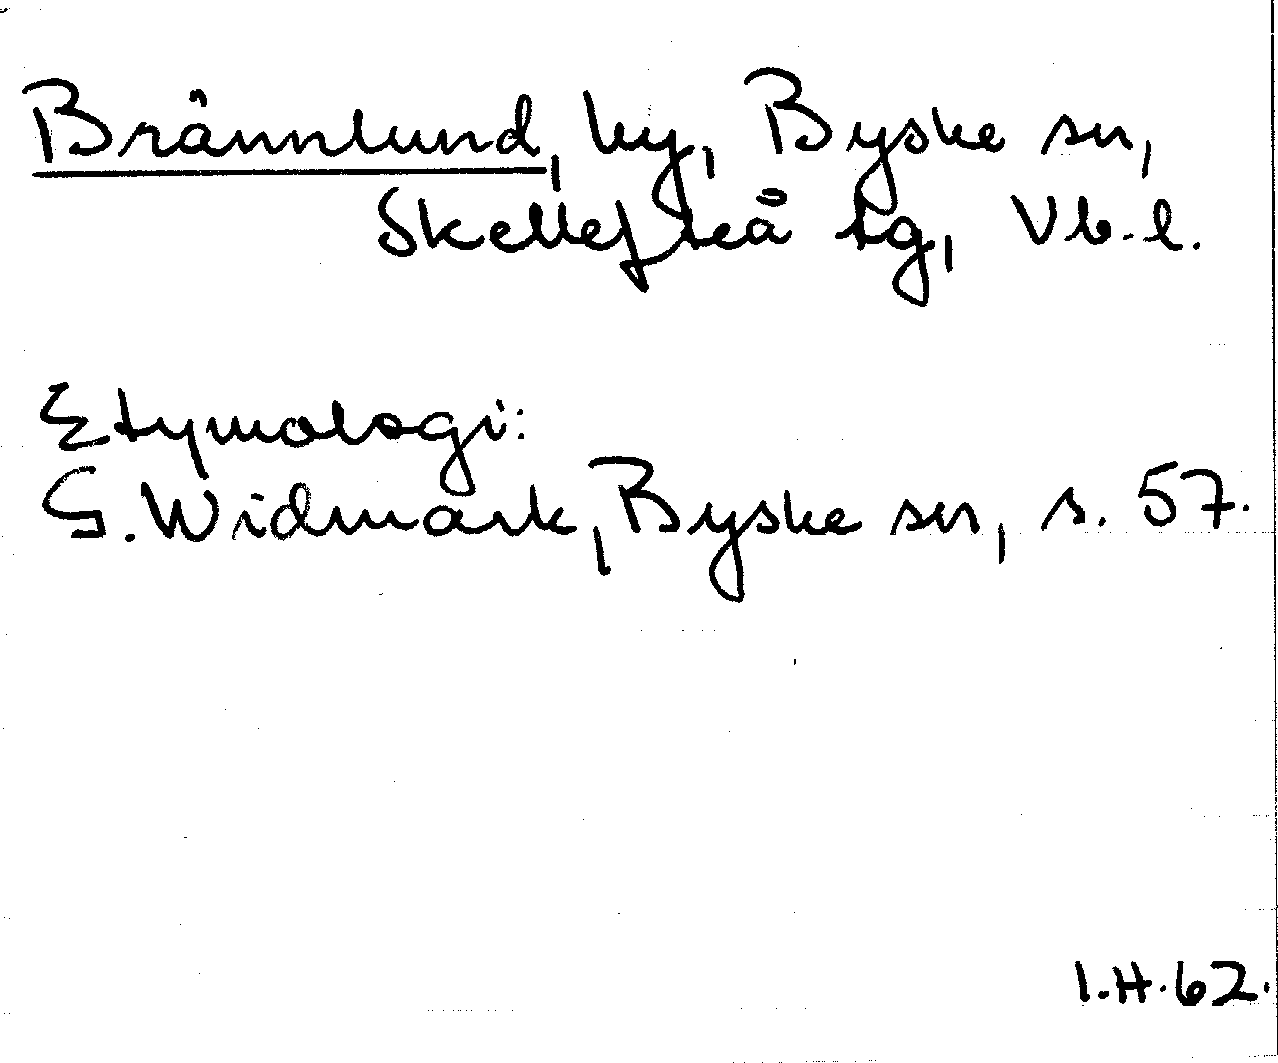 Brännlund, by, Byske sn,
Skellefteå tg, Vb. l.
Etymologi:
G. Widmark, Byske sn, s. 57.
I.H.62.